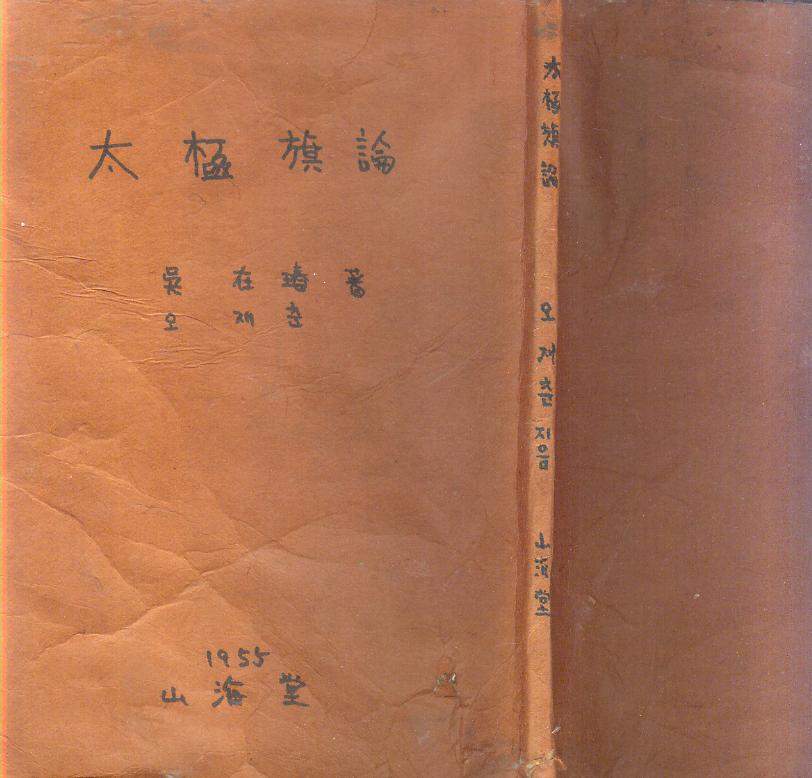 太極旗論
吳在瑃著
오재춘
1955
山海堂
太極旗論 오재춘 지음 山海堂